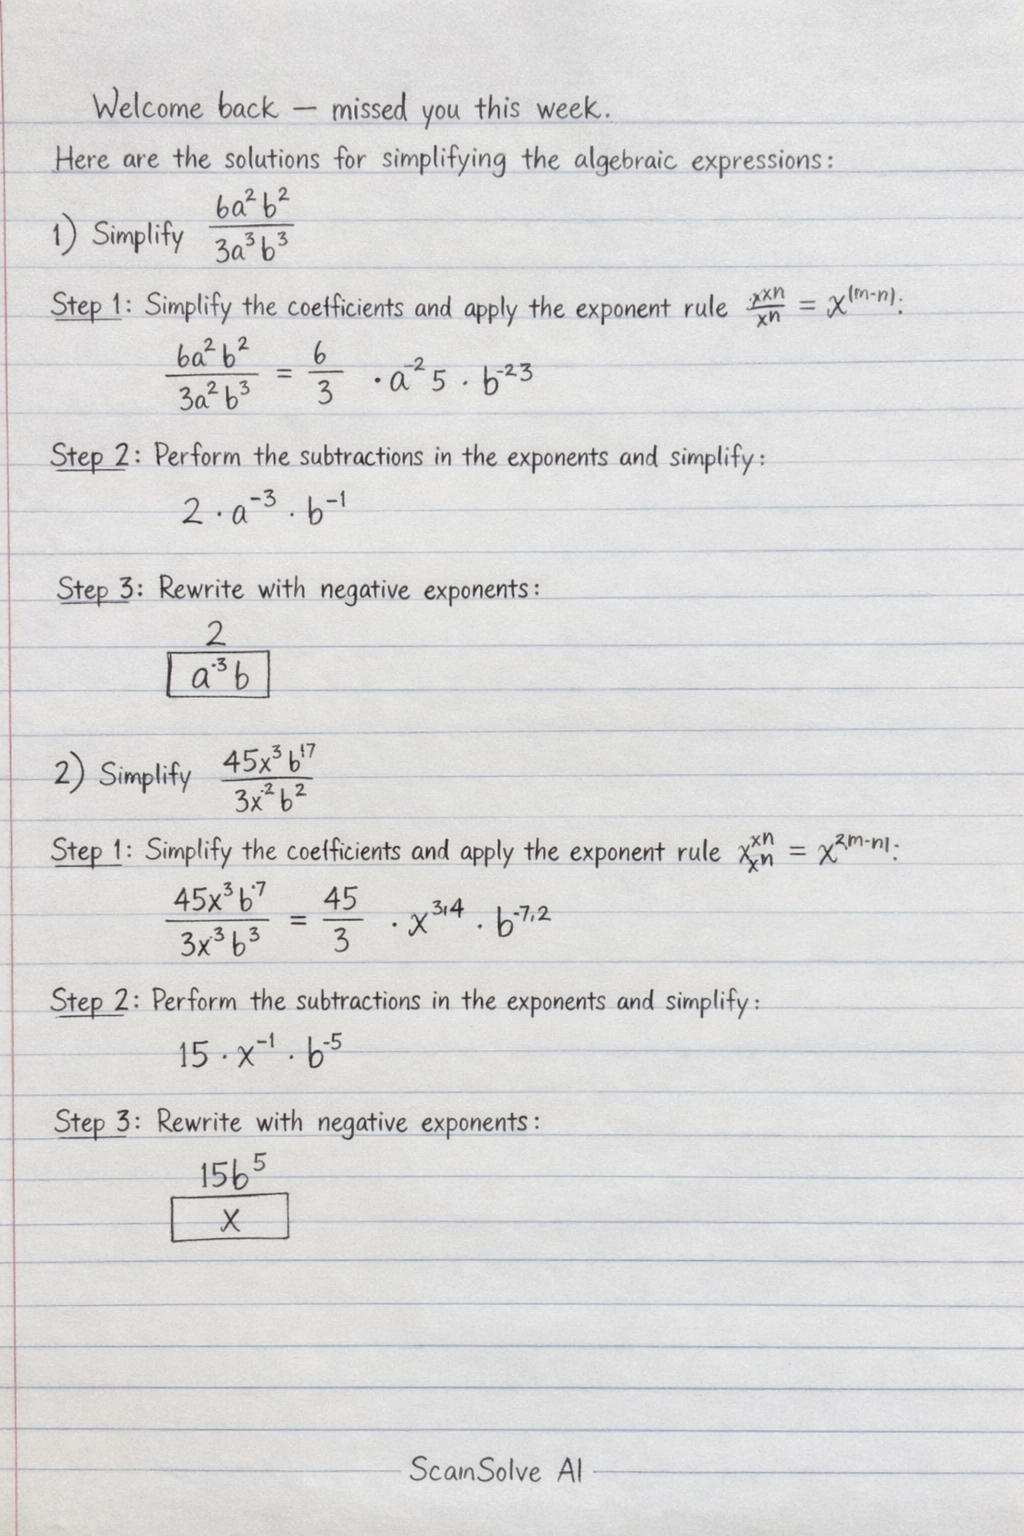 Welcome back — missed you this week.
Here are the solutions for simplifying the algebraic expressions:
1) Simplify 6a²b² / 3a³b³
Step 1: Simplify the coefficients and apply the exponent rule xxn / xn = x^(m-n):
6a²b² / 3a²b³ = 6 / 3 · a⁻²5 · b⁻²³
Step 2: Perform the subtractions in the exponents and simplify:
2 · a⁻³ · b⁻¹
Step 3: Rewrite with negative exponents:
2
a⁻³b
2) Simplify 45x³b¹⁷ / 3x⁻²b²
Step 1: Simplify the coefficients and apply the exponent rule x^xn xn = x^2m-n|:
45x³b⁻⁷ / 3x³b³ = 45 / 3 · x^3,4 · b^-7,2
Step 2: Perform the subtractions in the exponents and simplify:
15 · x⁻¹ · b⁻⁵
Step 3: Rewrite with negative exponents:
15b⁵
x
ScanSolve AI